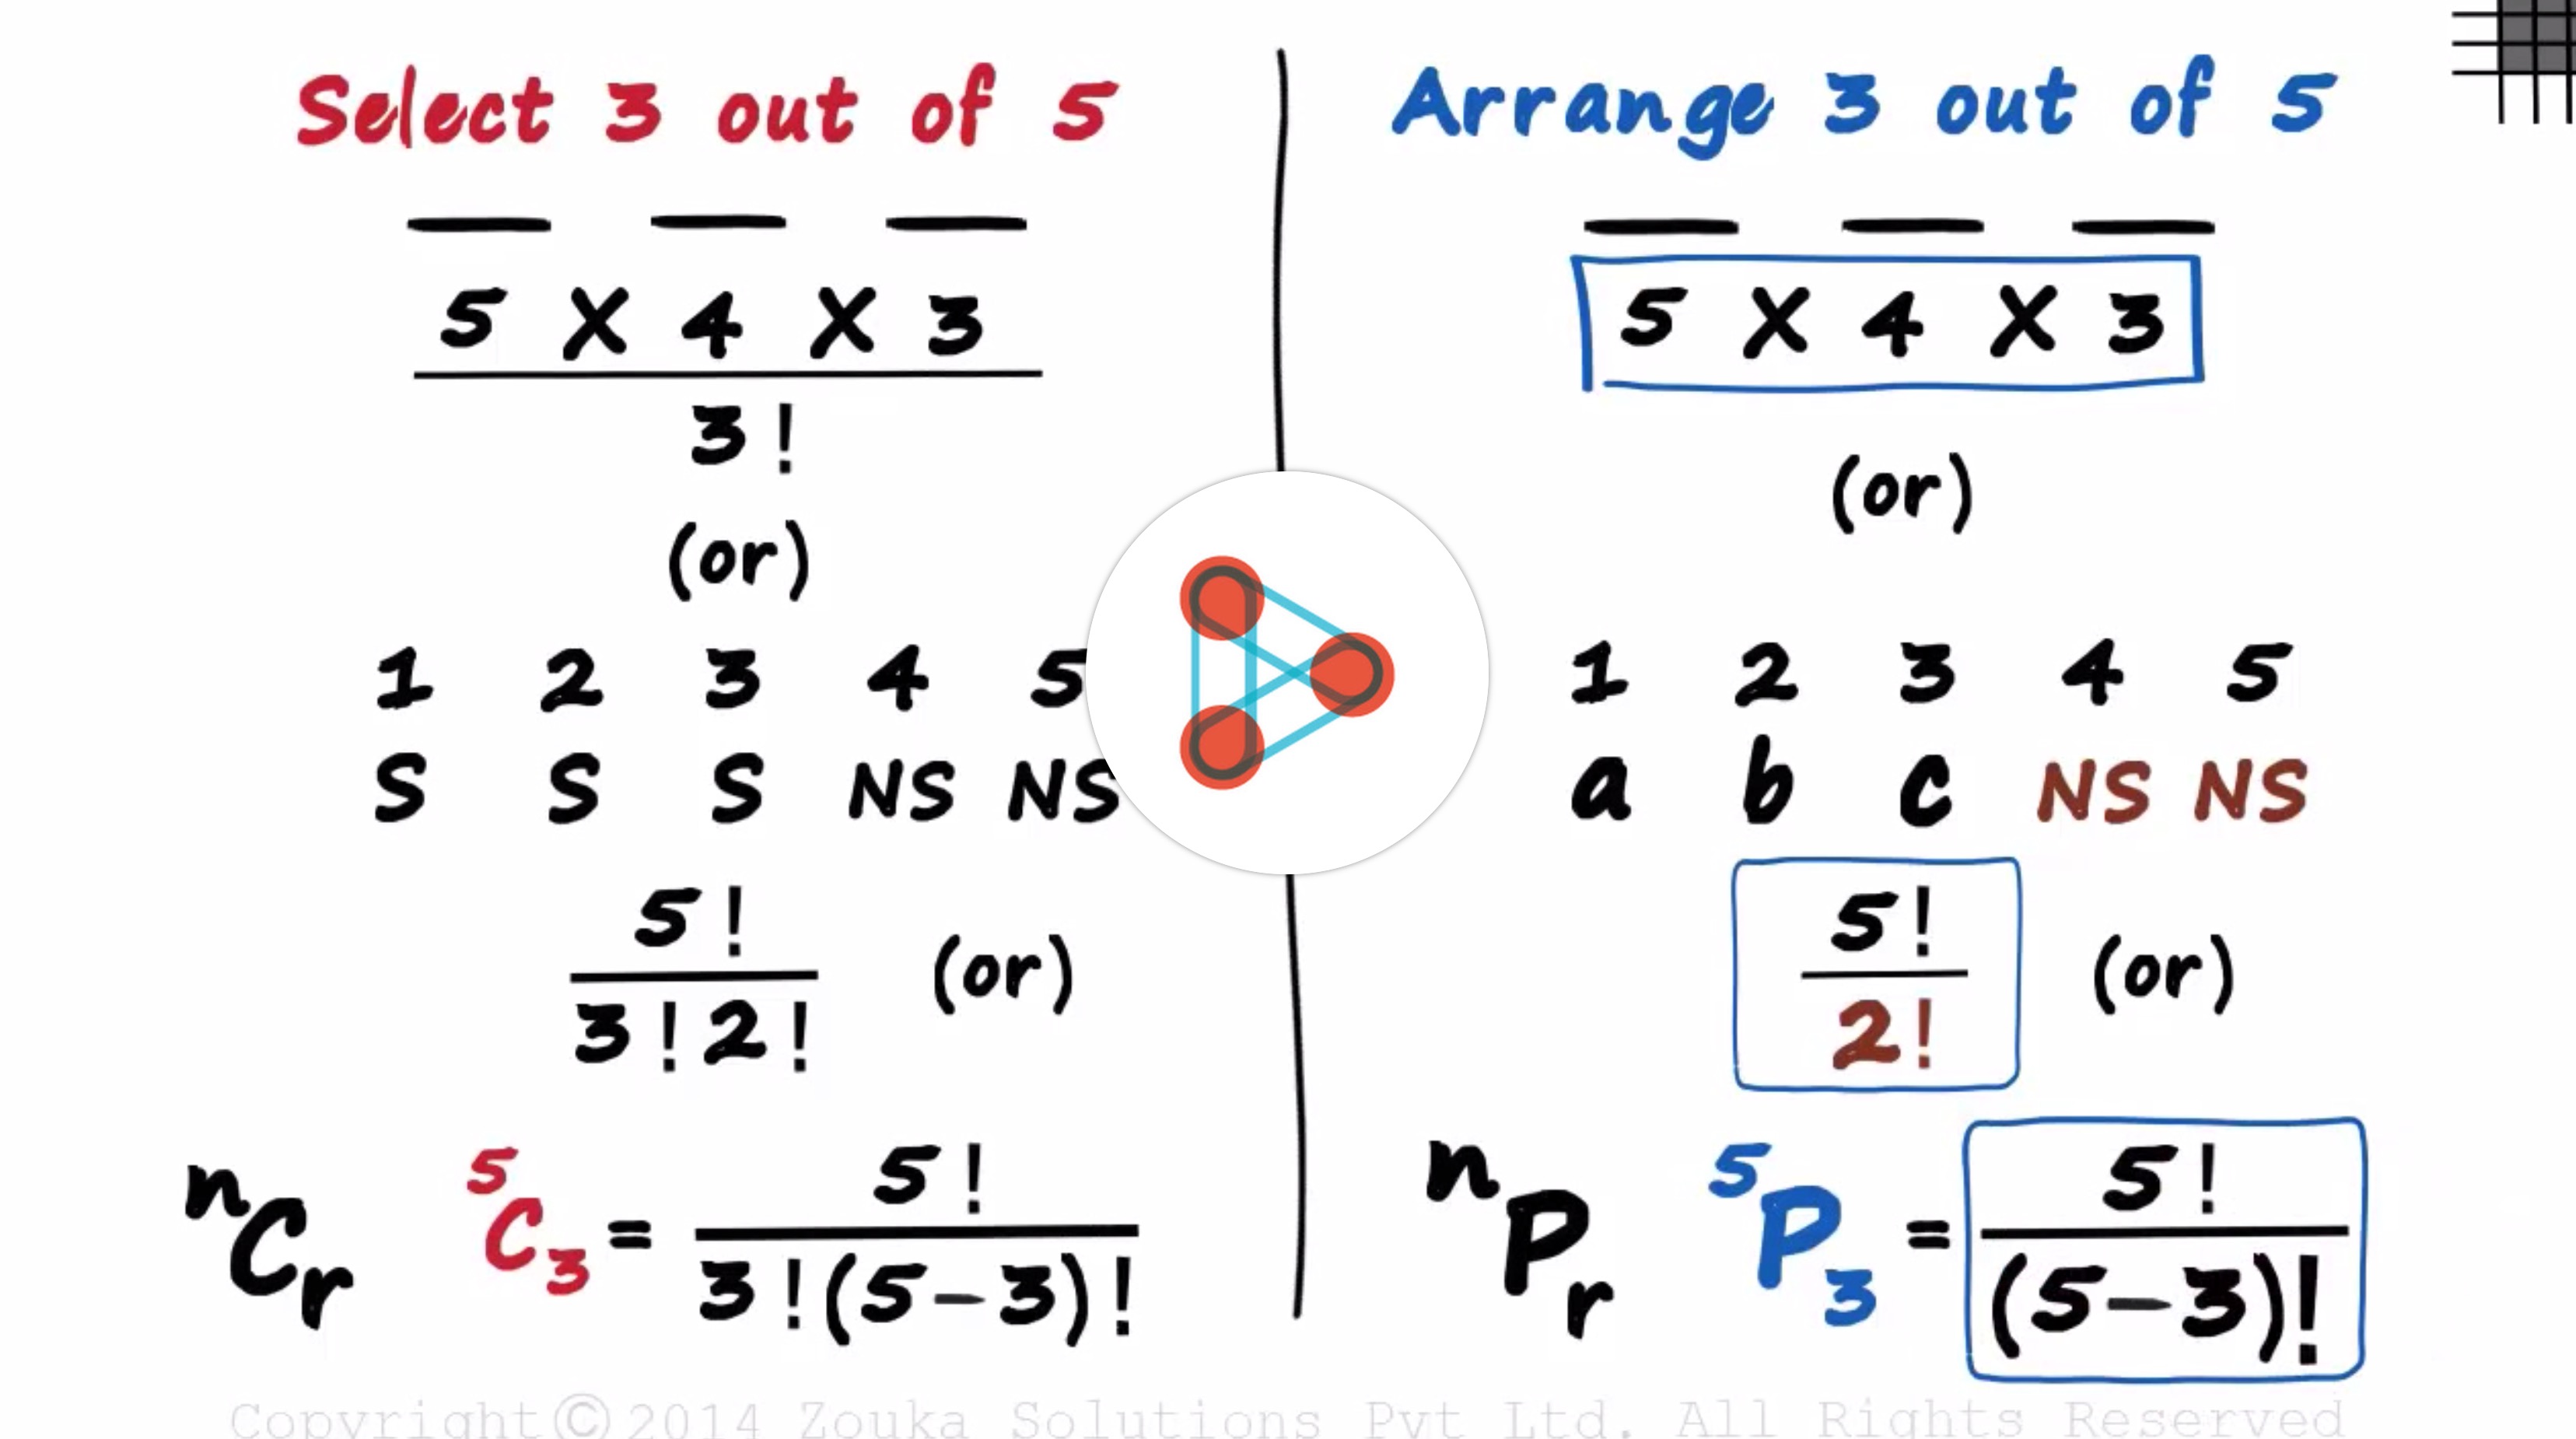 Select 3 out of 5
5 X 4 X 3
3!
(or)
1 2 3 4 5
S S S NS NS
5!
3!2!
(or)
nCr 5C3 = 5!
3!(5-3)!
Arrange 3 out of 5
5 X 4 X 3
(or)
1 2 3 4 5
a b c NS NS
5!
2!
(or)
nPr 5P3 = 5!
(5-3)!
Copyright©2014 Zouka Solutions Pvt Ltd. All Rights Reserved